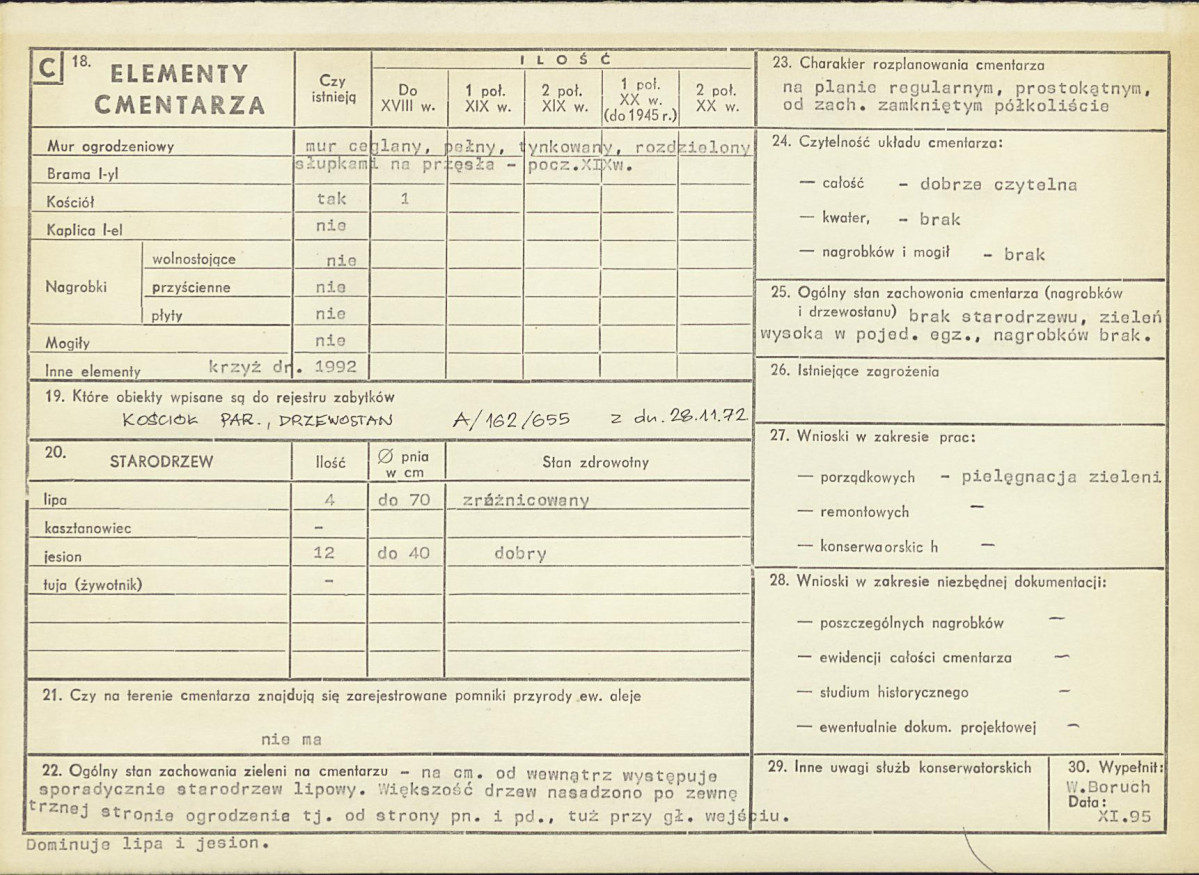 C 18. ELEMENTY CMENTARZA
Czy istnieją
I L O Ś Ć
Do XVIII w.
1 poł. XIX w.
2 poł. XIX w.
1 poł. XX w. (do 1945 r.)
2 poł. XX w.
Mur ogrodzeniowy mur ceglany, pełny, tynkowany, rozdzielony
Brama I-yl słupkami na przęsła - pocz.XIXw.
Kościół tak 1
Kaplica I-el nie
Nagrobki
wolnostojące nie
przyścienne nie
płyty nie
Mogiły nie
Inne elementy krzyż dr. 1992
19. Które obiekty wpisane są do rejestru zabytków
KOŚCIÓŁ PAR., DRZEWOSTAN A/162/655 z dn. 28.11.72
20. STARODRZEW Ilość Ø pnia w cm Stan zdrowotny
lipa 4 do 70 zróżnicowany
kasztanowiec -
jesion 12 do 40 dobry
tuja (żywotnik) -
21. Czy na terenie cmentarza znajdują się zarejestrowane pomniki przyrody ew. aleje
nie ma
22. Ogólny stan zachowania zieleni na cmentarzu - na cm. od wewnątrz występuje
sporadycznie starodrzew lipowy. Większość drzew nasadzono po zewnę
trznej stronie ogrodzenia tj. od strony pn. i pd., tuż przy gł. wejściu.
Dominuje lipa i jesion.
23. Charakter rozplanowania cmentarza
na planie regularnym, prostokątnym,
od zach. zamkniętym półkoliście
24. Czytelność układu cmentarza:
— całość - dobrze czytelna
— kwater, - brak
— nagrobków i mogił - brak
25. Ogólny stan zachowonia cmentarza (nagrobków
i drzewostanu) brak starodrzewu, zieleń
wysoka w pojed. egz., nagrobków brak.
26. Istniejące zagrożenia
27. Wnioski w zakresie prac:
— porządkowych - pielęgnacja zieleni
— remontowych —
— konserwaorskic h —
28. Wnioski w zakresie niezbędnej dokumentacji:
— poszczególnych nagrobków —
— ewidencji całości cmentarza —
— studium historycznego —
— ewentualnie dokum. projektowej —
29. Inne uwagi służb konserwatorskich
30. Wypełnił:
W.Boruch
Data:
XI.95